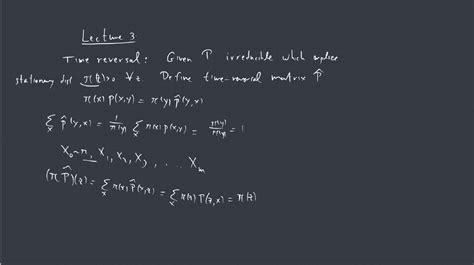 Lecture 3
Time reversal: Given P irreducible which implies
stationary dist π(z)>0 ∀z. Define time-reversal matrix P̂
π(x) P(x,y) = π(y) P̂(y,x)
∑_x P̂(y,x) = 1/π(y) ∑_x π(x) P(x,y) = π(y)/π(y) = 1
X_0 ~ π, X_1, X_2, X_3, ... X_m
(π P̂)(z) = ∑_x π(x) P̂(x,z) = ∑_x π(z) P(z,x) = π(z)